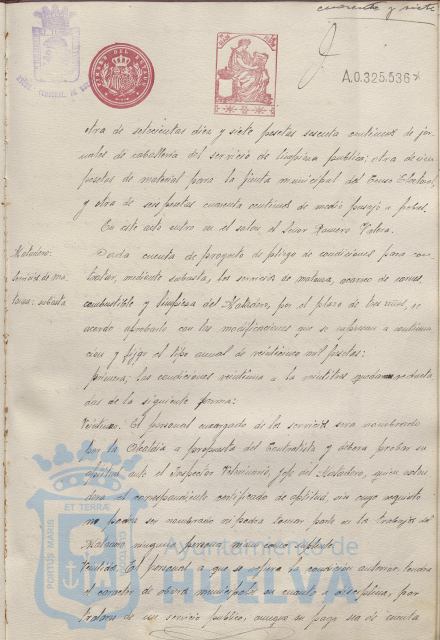 cuarenta y siete
A.0.325.536
otra de setecientas diez y siete pesetas sesenta centimos de jor-
nales de caballeria del servicio de limpieza publica; otra de cien
pesetas de material para la Junta municipal del Censo Electoral
y otra de seis pesetas cuarenta centimos de medio pasaje a pobres.
En este acto entra en el salon el Señor Romero Valera.
Matadero:
Servicios de ma-
tanza: subasta
Dada cuenta de proyecto de pliego de condiciones para con-
tratar, mediante subasta, los servicios de matanza, acarreo de carnes,
combustible y limpieza del Matadero, por el plazo de tres años, se
acordo aprobarlo con las modificaciones que se expresan a continua-
cion y fijar el tipo anual de veinticinco mil pesetas:
primera; las condiciones veintiuna a la quedan redacta-
das de la siguiente forma:
El personal encargado de los servicios sera nombrado
por la Alcaldia a propuesta del Contratista y debera probar su
aptitud ante el Inspector Veterinario, Jefe del Matadero, quien
el correspondiente certificado de aptitud, sin cuyo requisito
no podra ser nombrado ni podra tomar parte en los trabajos del
Matadero ninguna persona, suplente.
El personal a que se refiere la condicion anterior tendra
el caracter de obrero municipal en cuanto a disciplina, por
tratarse de un servicio publico, aunque su pago sea de cuenta
ET TERRA
PORTUS MARIS
Ayuntamiento de
HUELVA